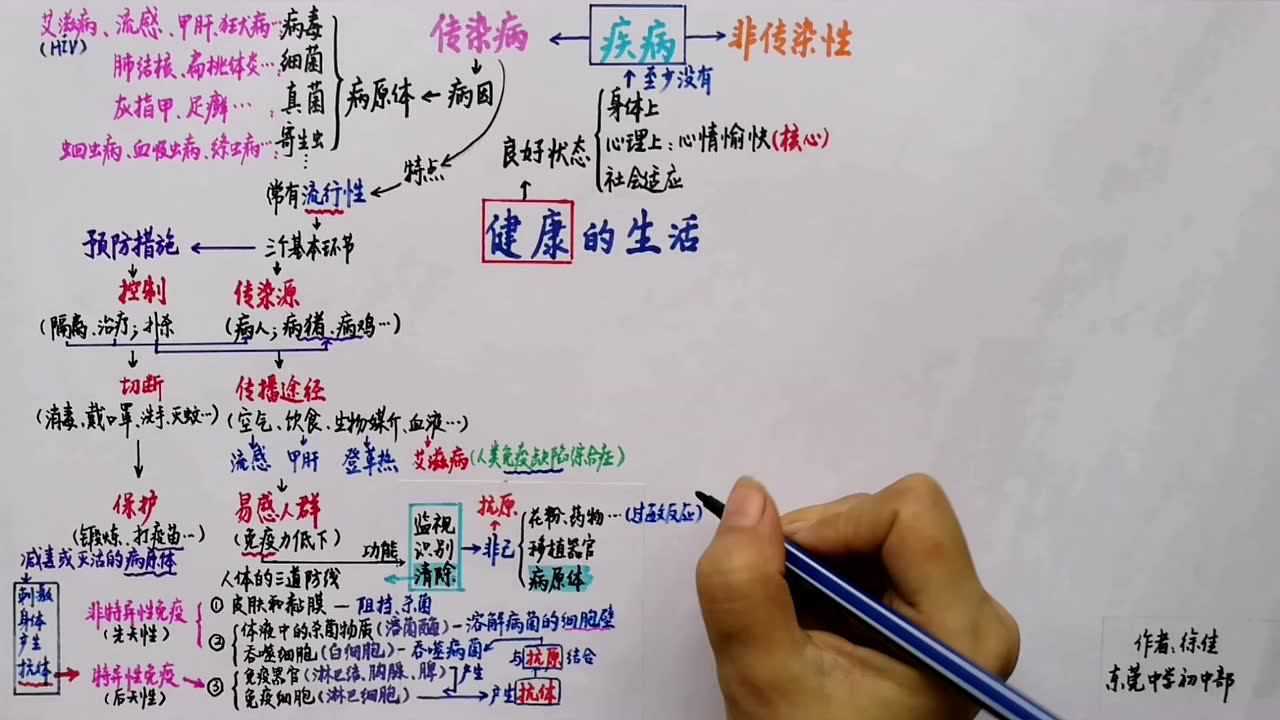 艾滋病、流感、甲肝、狂犬病…病毒
(HIV)
肺结核、扁桃体炎…:细菌
灰指甲、足癣…:真菌
蛔虫病、血吸虫病、绦虫病…:寄生虫
…
病原体 ← 病因
传染病 ← 疾病 → 非传染性
↑至少没有
身体上
心理上:心情愉快(核心)
社会适应
良好状态
健康的生活
特点
常有流行性
预防措施 ← 三个基本环节
控制 传染源
(隔离、治疗;扑杀 (病人;病猪、病鸡…)
切断 传播途径
(消毒、戴口罩、洗手、灭蚊…) (空气、饮食、生物媒介、血液…)
流感 甲肝 登革热 艾滋病(人类免疫缺陷综合症)
保护 易感人群
(锻炼、打疫苗…) (免疫力低下)
减毒或灭活的病原体
刺激
身体
产生
抗体
功能
监视
识别
清除
抗原
非己
花粉、药物…(过敏反应)
移植器官
病原体
人体的三道防线
非特异性免疫
(先天性)
特异性免疫
(后天性)
① 皮肤和黏膜 — 阻挡、杀菌
② 体液中的杀菌物质(溶菌酶)-溶解病菌的细胞壁
吞噬细胞(白细胞)-吞噬病菌
③ 免疫器官(淋巴结、胸腺、脾) 产生
免疫细胞(淋巴细胞) 产生抗体
与抗原结合
作者:徐佳
东莞中学初中部